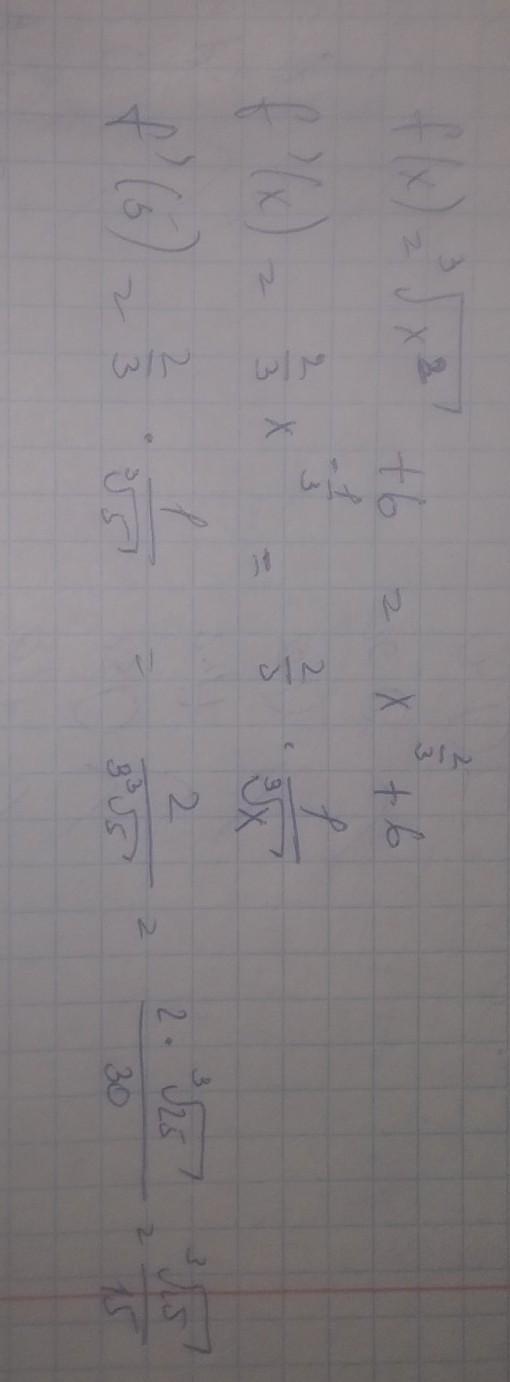 f(x) = ∛x² + 6 = x^(2/3) + 6
f'(x) = 2/3 x^(-1/3) = 2/3 · 1/∛x
f'(5) = 2/3 · 1/∛5 = 2/(3∛5) = (2 · ∛25)/30 = ∛25/15